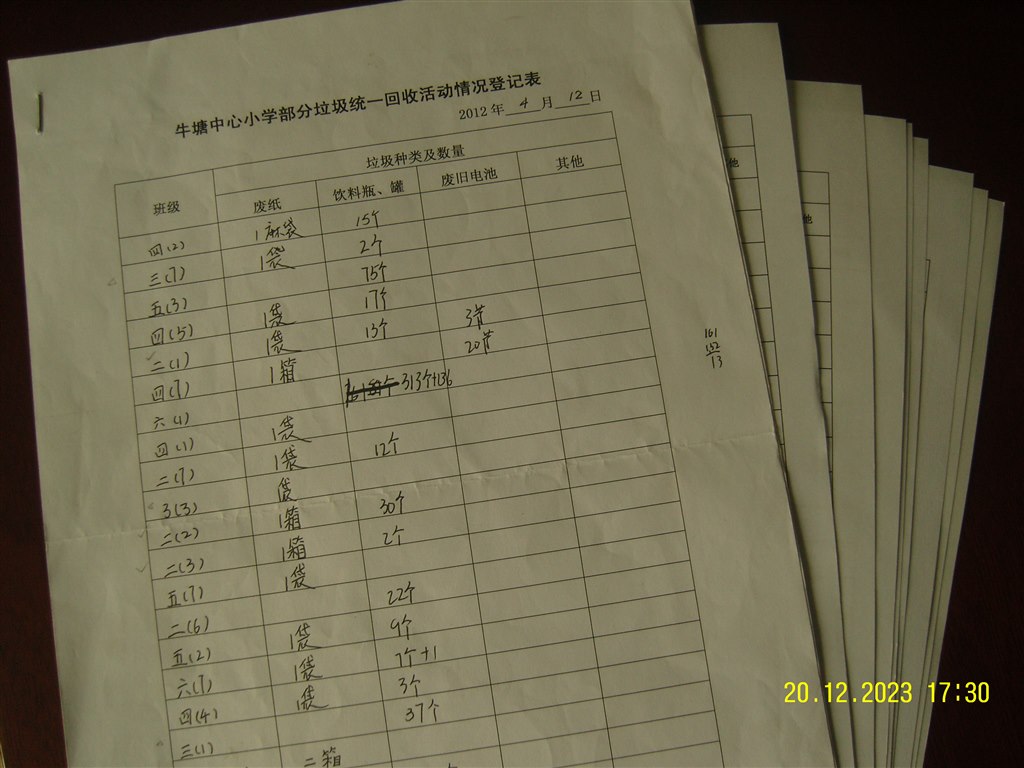 牛塘中心小学部分垃圾统一回收活动情况登记表
2012 年 4 月 12 日
班级 垃圾种类及数量
废纸 饮料瓶、罐 废旧电池 其他
四(2) 1麻袋 15个
三(7) 1袋 2个
五(3) 75个
四(5) 1袋 17个
二(1) 1袋 13个 3节
四(7) 1箱 20节
六(1) 313个+136
四(1) 1袋
二(7) 1袋 12个
3(3) 1袋
二(2) 1箱 30个
二(3) 1箱 2个
五(7) 1袋
二(6) 22个
五(2) 1袋 9个
六(7) 1袋 7个+1
四(4) 1袋 3个
三(1) 37个
二箱
161
152
13
他
他
20.12.2023 17:30